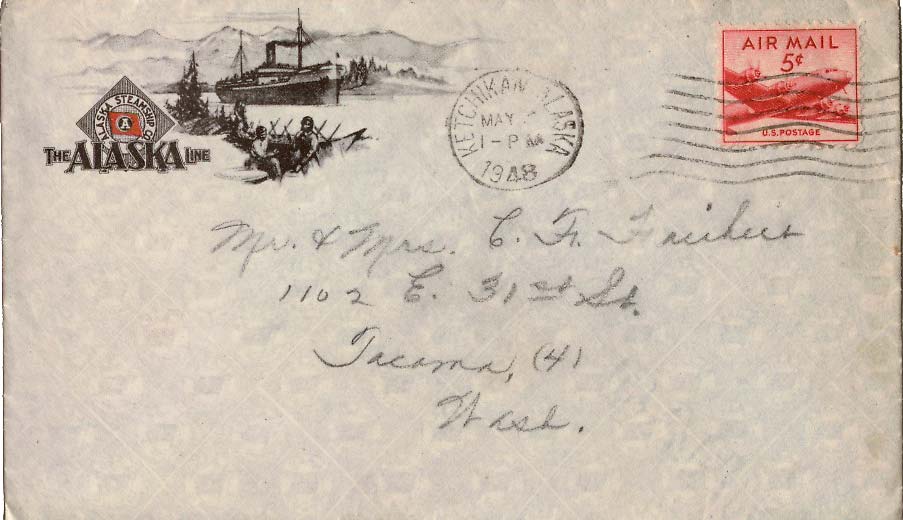 ALASKA STEAMSHIP CO.
A
THE ALASKA LINE
KETCHIKAN ALASKA
MAY
1-PM
1948
AIR MAIL
5¢
U.S. POSTAGE
Mr. & Mrs. C. Fr.
1102 E. 31st St.
Tacoma, (4)
Wash.